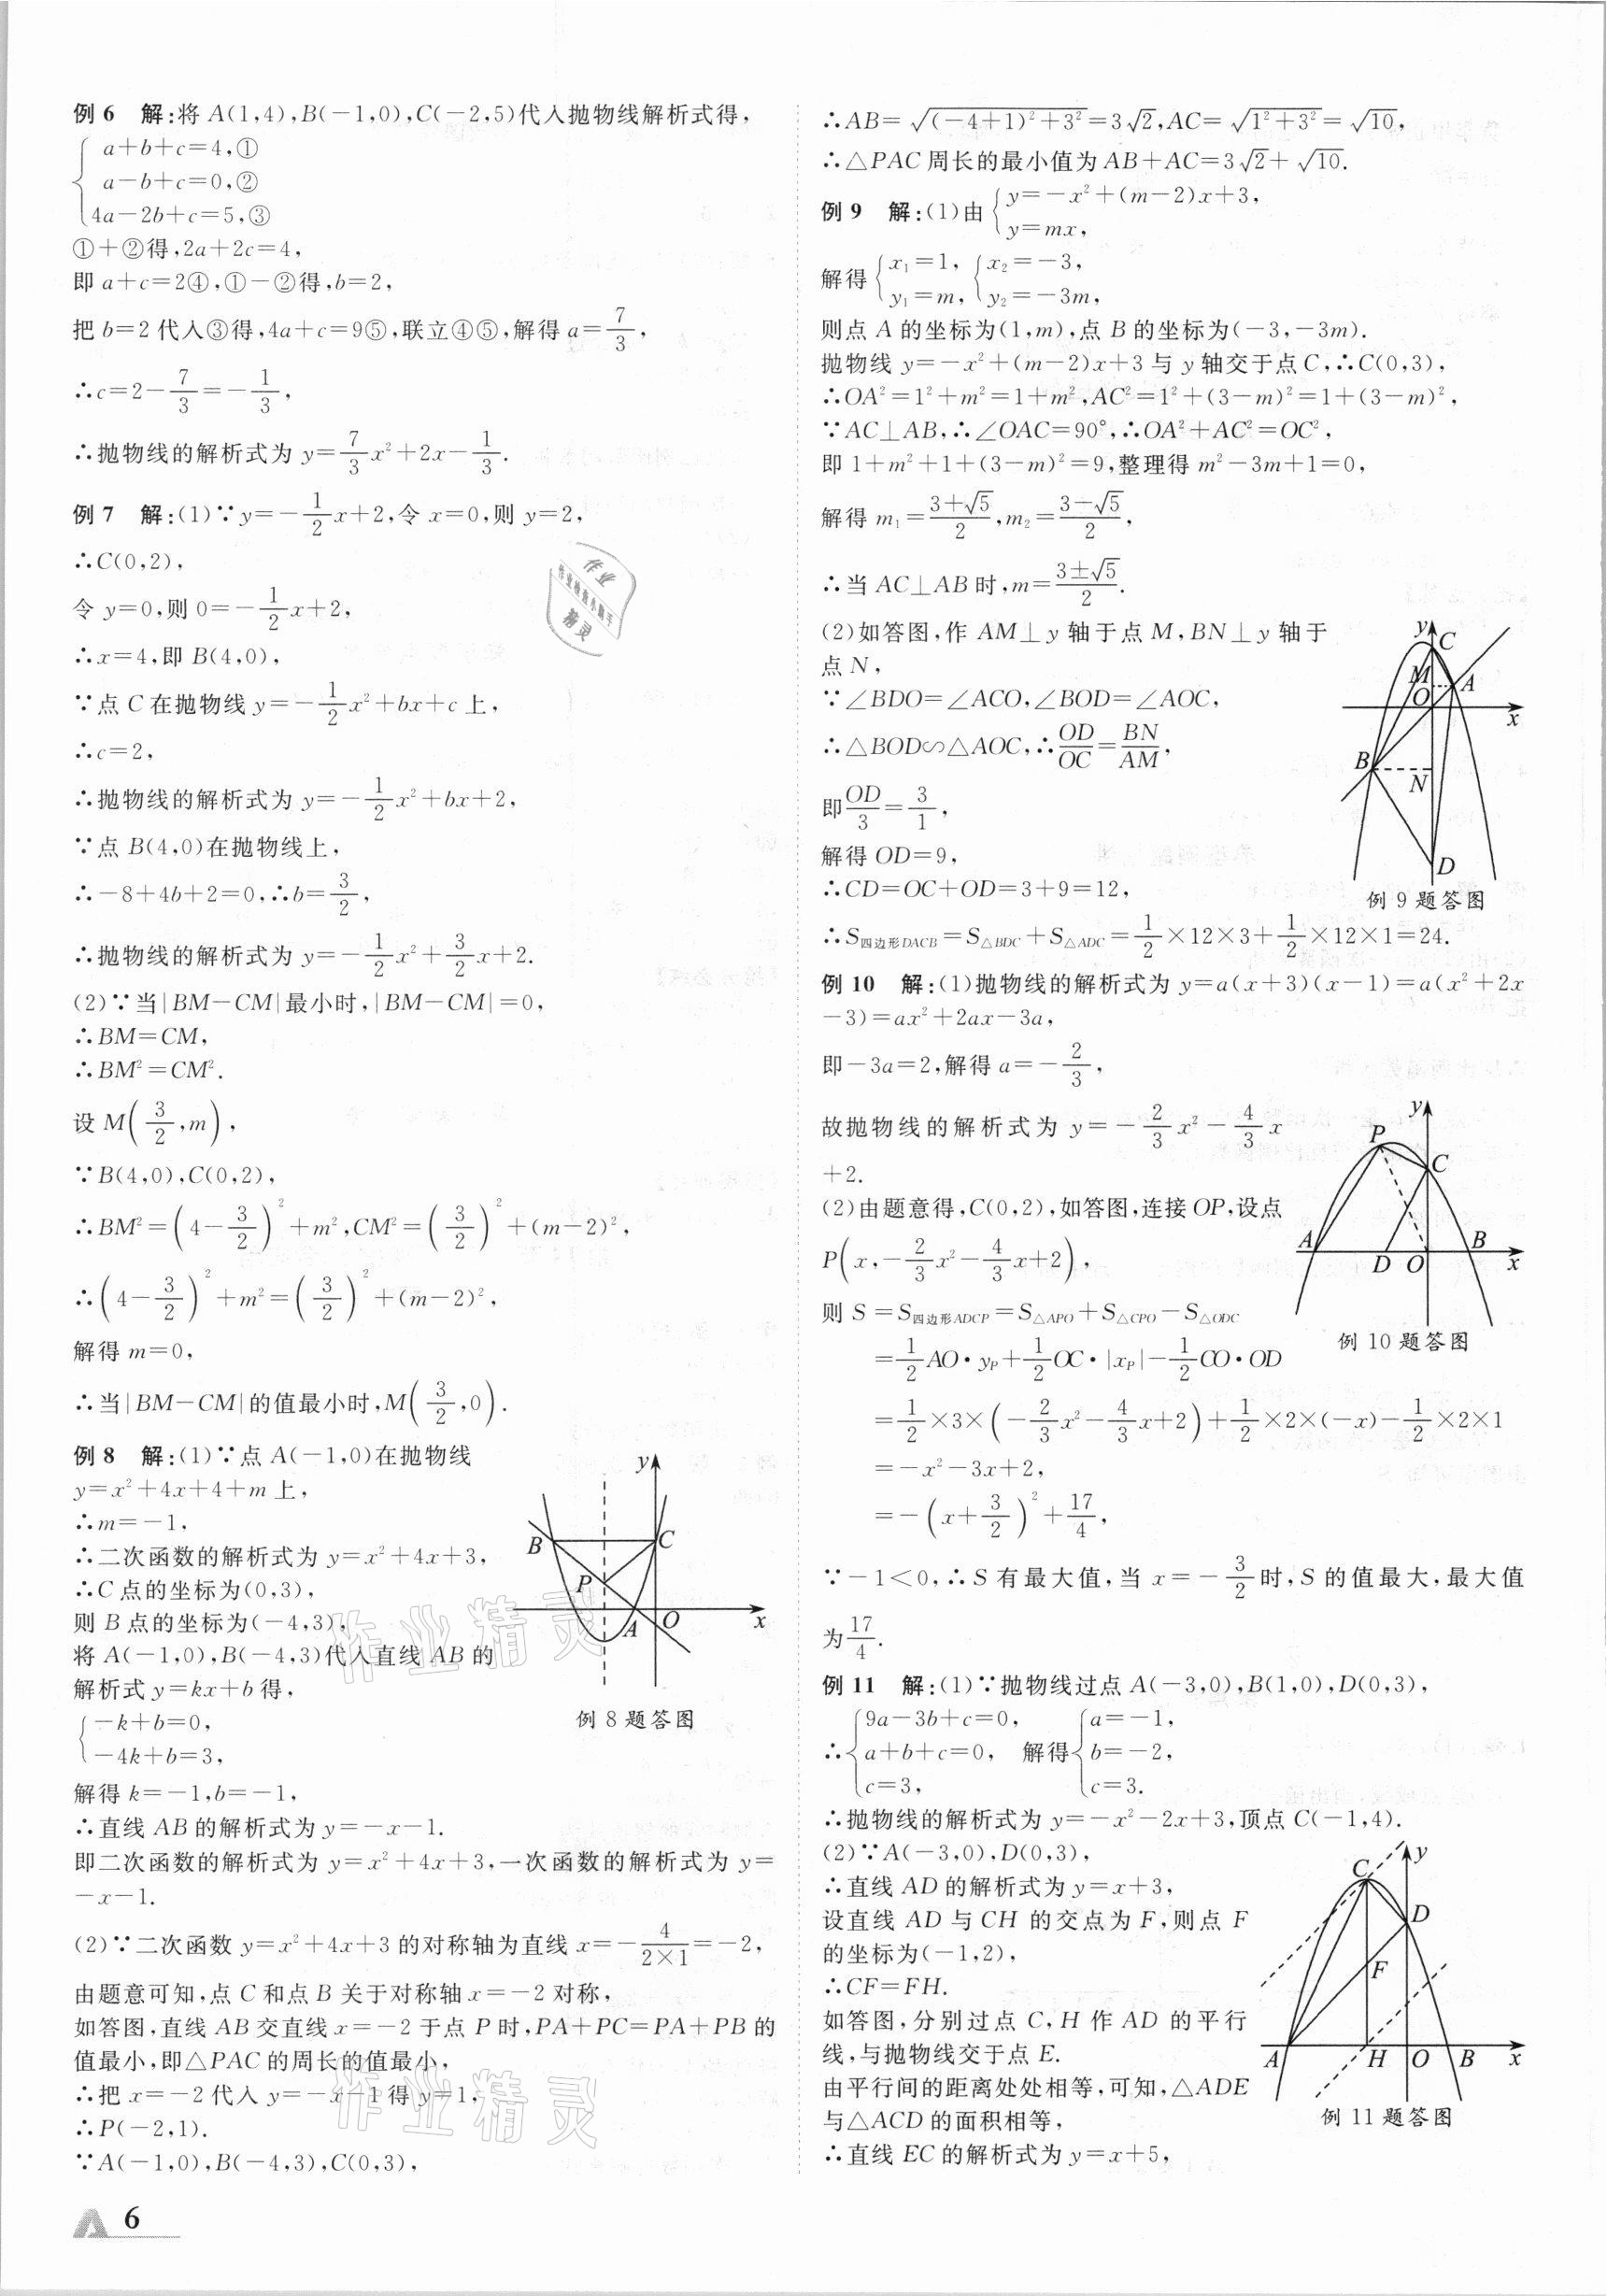 例6 解:将A(1,4),B(-1,0),C(-2,5)代入抛物线解析式得,
{a+b+c=4,①
a-b+c=0,②
4a-2b+c=5,③
①+②得,2a+2c=4,
即a+c=2④,①-②得,b=2,
把b=2代入③得,4a+c=9⑤,联立④⑤,解得a=7/3,
∴c=2-7/3=-1/3,
∴抛物线的解析式为y=7/3x²+2x-1/3.
例7 解:(1)∵y=-1/2x+2,令x=0,则y=2,
∴C(0,2),
令y=0,则0=-1/2x+2,
∴x=4,即B(4,0),
∵点C在抛物线y=-1/2x²+bx+c上,
∴c=2,
∴抛物线的解析式为y=-1/2x²+bx+2,
∵点B(4,0)在抛物线上,
∴-8+4b+2=0,∴b=3/2,
∴抛物线的解析式为y=-1/2x²+3/2x+2.
(2)∵当|BM-CM|最小时,|BM-CM|=0,
∴BM=CM,
∴BM²=CM².
设M(3/2,m),
∵B(4,0),C(0,2),
∴BM²=(4-3/2)²+m²,CM²=(3/2)²+(m-2)²,
∴(4-3/2)²+m²=(3/2)²+(m-2)²,
解得m=0,
∴当|BM-CM|的值最小时,M(3/2,0).
例8 解:(1)∵点A(-1,0)在抛物线
y=x²+4x+4+m上,
∴m=-1,
∴二次函数的解析式为y=x²+4x+3,
∴C点的坐标为(0,3),
则B点的坐标为(-4,3),
将A(-1,0),B(-4,3)代入直线AB的
解析式y=kx+b得,
{-k+b=0,
-4k+b=3,
y
B
C
P
A
O
x
例8题答图
解得k=-1,b=-1,
∴直线AB的解析式为y=-x-1.
即二次函数的解析式为y=x²+4x+3,一次函数的解析式为y=
-x-1.
(2)∵二次函数y=x²+4x+3的对称轴为直线x=-4/(2×1)=-2,
由题意可知,点C和点B关于对称轴x=-2对称,
如答图,直线AB交直线x=-2于点P时,PA+PC=PA+PB的
值最小,即△PAC的周长的值最小,
∴把x=-2代入y=-x-1得y=1,
∴P(-2,1).
∵A(-1,0),B(-4,3),C(0,3),
∴AB=√((-4+1)²+3²)=3√2,AC=√(1²+3²)=√10,
∴△PAC周长的最小值为AB+AC=3√2+√10.
例9 解:(1)由{y=-x²+(m-2)x+3,
y=mx,
解得{x₁=1, {x₂=-3,
y₁=m, y₂=-3m,
则点A的坐标为(1,m),点B的坐标为(-3,-3m).
抛物线y=-x²+(m-2)x+3与y轴交于点C,∴C(0,3),
∴OA²=1²+m²=1+m²,AC²=1²+(3-m)²=1+(3-m)²,
∵AC⊥AB,∴∠OAC=90°,∴OA²+AC²=OC²,
即1+m²+1+(3-m)²=9,整理得m²-3m+1=0,
解得m₁=(3+√5)/2,m₂=(3-√5)/2,
∴当AC⊥AB时,m=(3±√5)/2.
(2)如答图,作AM⊥y轴于点M,BN⊥y轴于
点N,
∵∠BDO=∠ACO,∠BOD=∠AOC,
∴△BOD∽△AOC,∴OD/OC=BN/AM,
即OD/3=3/1,
解得OD=9,
∴CD=OC+OD=3+9=12,
y
C
M
A
O
x
B
N
D
例9题答图
∴S四边形DACB=S△BDC+S△ADC=1/2×12×3+1/2×12×1=24.
例10 解:(1)抛物线的解析式为y=a(x+3)(x-1)=a(x²+2x
-3)=ax²+2ax-3a,
即-3a=2,解得a=-2/3,
故抛物线的解析式为y=-2/3x²-4/3x
+2.
(2)由题意得,C(0,2),如答图,连接OP,设点
P(x,-2/3x²-4/3x+2),
则S=S四边形ADCP=S△APO+S△CPO-S△ODC
=1/2AO·yP+1/2OC·|xP|-1/2CO·OD
y
P
C
A
B
D
O
x
例10题答图
=1/2×3×(-2/3x²-4/3x+2)+1/2×2×(-x)-1/2×2×1
=-x²-3x+2,
=-(x+3/2)²+17/4,
∵-1<0,∴S有最大值,当x=-3/2时,S的值最大,最大值
为17/4.
例11 解:(1)∵抛物线过点A(-3,0),B(1,0),D(0,3),
∴{9a-3b+c=0, {a=-1,
a+b+c=0, 解得 b=-2,
c=3, c=3.
∴抛物线的解析式为y=-x²-2x+3,顶点C(-1,4).
(2)∵A(-3,0),D(0,3),
∴直线AD的解析式为y=x+3,
设直线AD与CH的交点为F,则点F
的坐标为(-1,2),
∴CF=FH.
如答图,分别过点C,H作AD的平行
线,与抛物线交于点E.
由平行间的距离处处相等,可知,△ADE
与△ACD的面积相等,
∴直线EC的解析式为y=x+5,
C
y
D
F
A
H
O
B
x
例11题答图
作业
作业精灵小助手
精灵
作业精灵
作业精灵
6